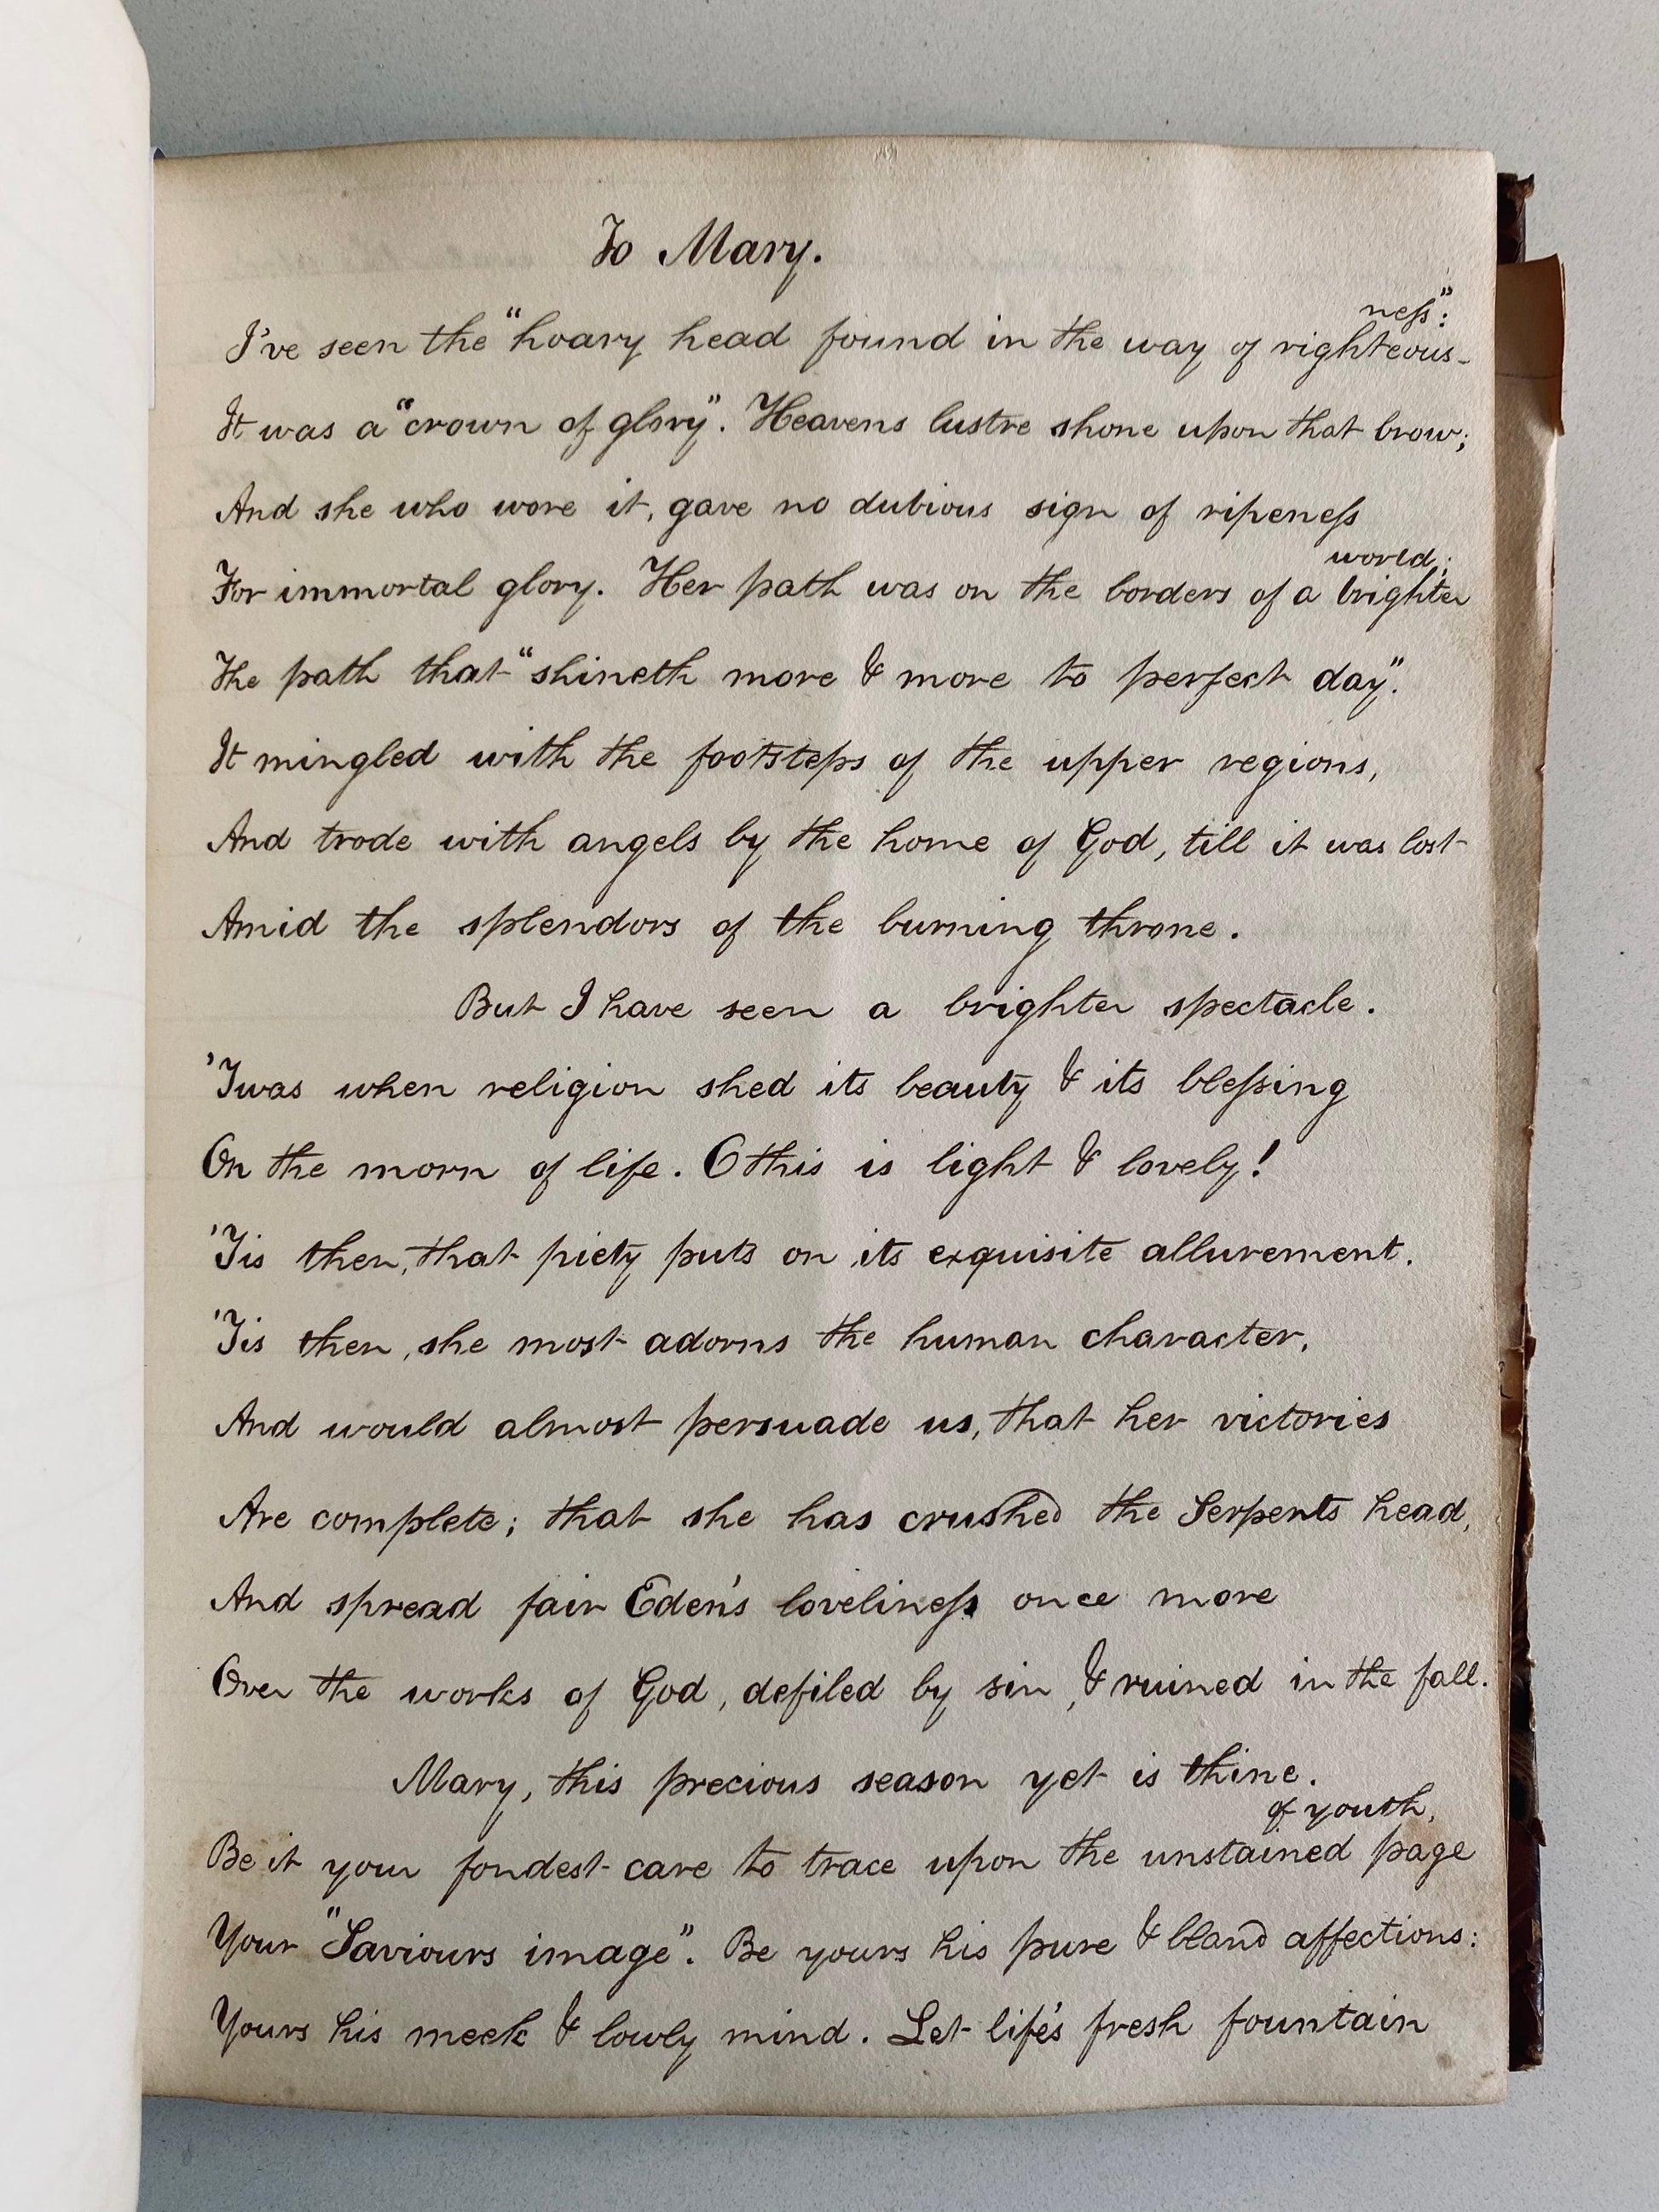 To Mary.
I've seen the "hoary head found in the way of righteous-
ness":
It was a "crown of glory". Heavens lustre shone upon that brow;
And she who wore it, gave no dubious sign of ripeness
For immortal glory. Her path was on the borders of a brighter
world;
The path that "shineth more & more to perfect day".
It mingled with the footsteps of the upper regions,
And trode with angels by the home of God, till it was lost
Amid the splendors of the burning throne.
But I have seen a brighter spectacle.
'Twas when religion shed its beauty & its blessing
On the morn of life. O this is light & lovely!
'Tis then, that piety puts on its exquisite allurement.
'Tis then, she most adorns the human character,
And would almost persuade us, that her victories
Are complete; that she has crushed the Serpents head,
And spread fair Eden's loveliness once more
Over the works of God, defiled by sin, & ruined in the fall.
Mary, this precious season yet is thine.
Be it your fondest care to trace upon the unstained page
of youth,
Your "Saviours image". Be yours his pure & bland affections:
Yours his meek & lowly mind. Let life's fresh fountain